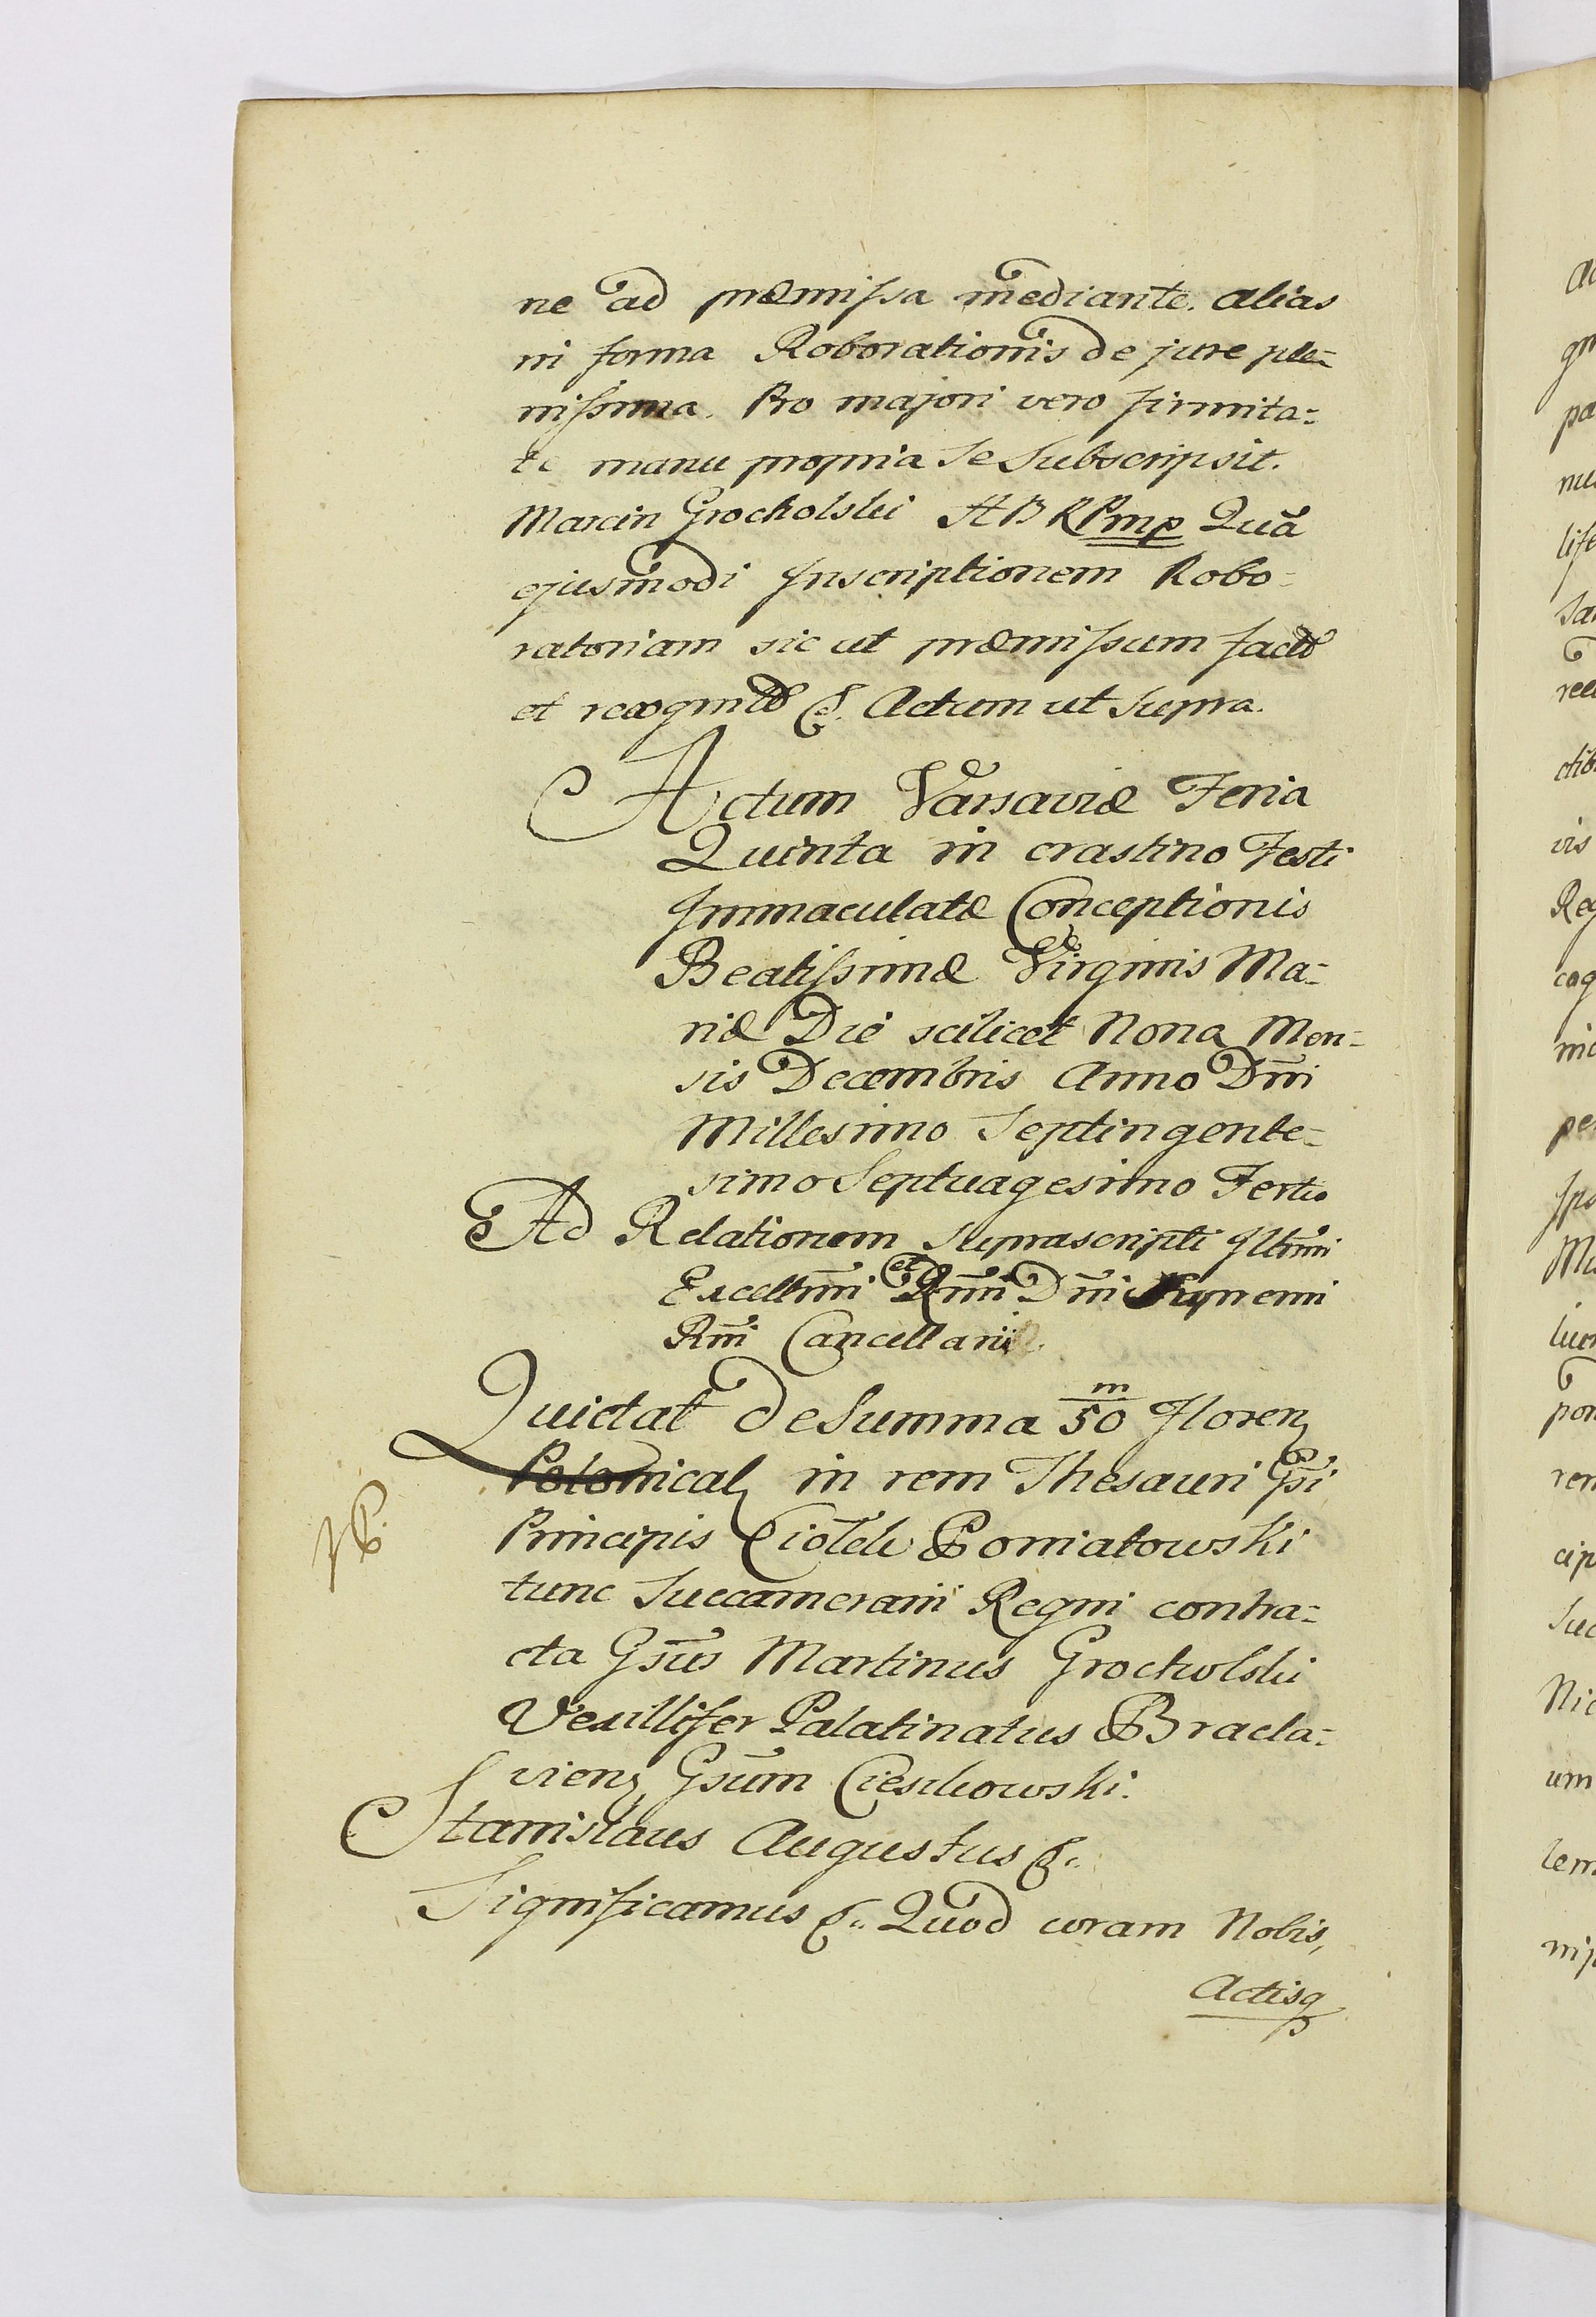 ne ad præmissa mediante. alias
in forma Roborationis de jure ple=
nissima. Pro majori vero firmita=
te manu propria se subscripsit.
Marcin Grocholski HBRPmp Quã
ejusmodi Inscriptionem Robo=
ratoriam sic ut præmissum facto
et recognito &. Actum ut supra.
Actum Varsaviæ Feria
Quinta in crastino Festi
Immaculatæ Conceptionis
Beatissimæ Virginis Ma=
riæ Die scilicet Nona Men=
sis Decembris Anno Dñi
Millesimo Septingente=
simo Septuagesimo Tertio
Ad Relationem suprascripti Illmi
Excellmi et Rmi Dñi Supremi
Rni Cancellarii.
Quietat de Summa 50 m Floren
Polonical in rem Thesauri Gsi
Principis Ciolek Poniatowski
tunc Succamerarii Regni contra=
cta Gsus Martinus Grocholski
Vexillifer Palatinatus Bracla=
vien Gsum Cieszkowski.
Stanislaus Augustus &.
Significamus &. Quod coram Nobis,
Actisq